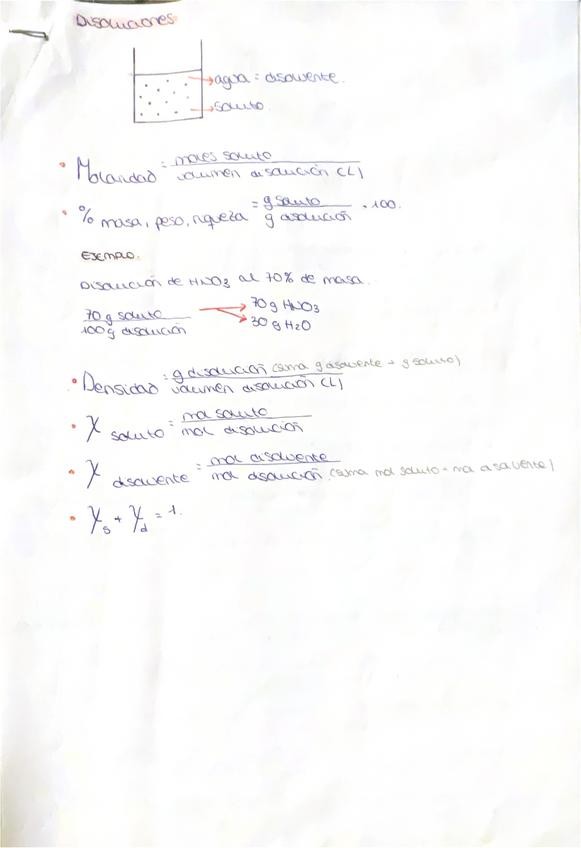 DISOLUCIONES
agua = disolvente.
soluto.
• Molaridad = moles soluto / volumen disolución (L)
• % masa, peso, riqueza = g soluto / g disolución · 100.
EJEMPLO.
Disolución de HNO3 al 70% de masa.
70 g soluto / 100 g disolución → 70 g HNO3
→ 30 g H2O
• Densidad = g disolución (suma g disolvente + g soluto) / volumen disolución (L)
• X soluto = mol soluto / mol disolución
• X disolvente = mol disolvente / mol disolución. (suma mol soluto + mol disolvente)
• Xs + Xd = 1.